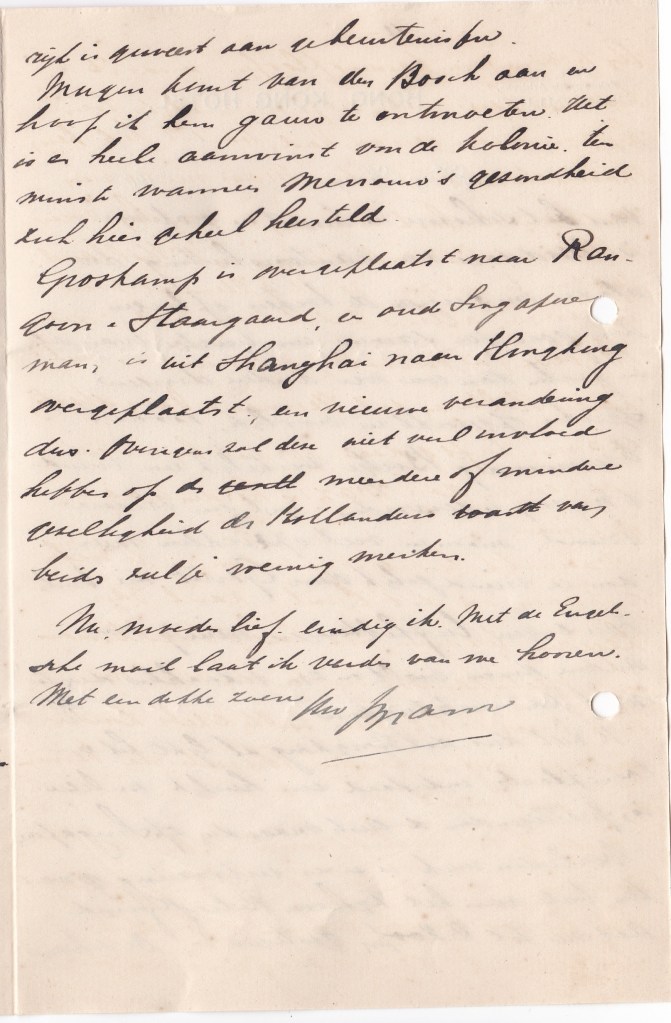 rijk is geweest aan gebeurtenissen.
Morgen komt van den Bosch aan en
hoop ik hem gauw te ontmoeten. Het
is een heele aanwinst von de kolonie. ten
minste wanneer Mevrouw's gezondheid
zich hier geheel hersteld.
Groskamp is overgeplaatst naar Ran-
goon. Staargaard, een oud Singapore
man, is uit Shanghai naar Hongkong
overgeplaatst, een nieuwe verandering
dus. Overigens zal deze niet veel invloed
hebben op de meerdere of mindere
gezelligheid der Hollanders want van
beide zul je weinig merken.
Nu, moeder lief eindig ik. Met de Engel-
sche mail laat ik verder van me hooren.
Met een dikke zoen Uw Bram